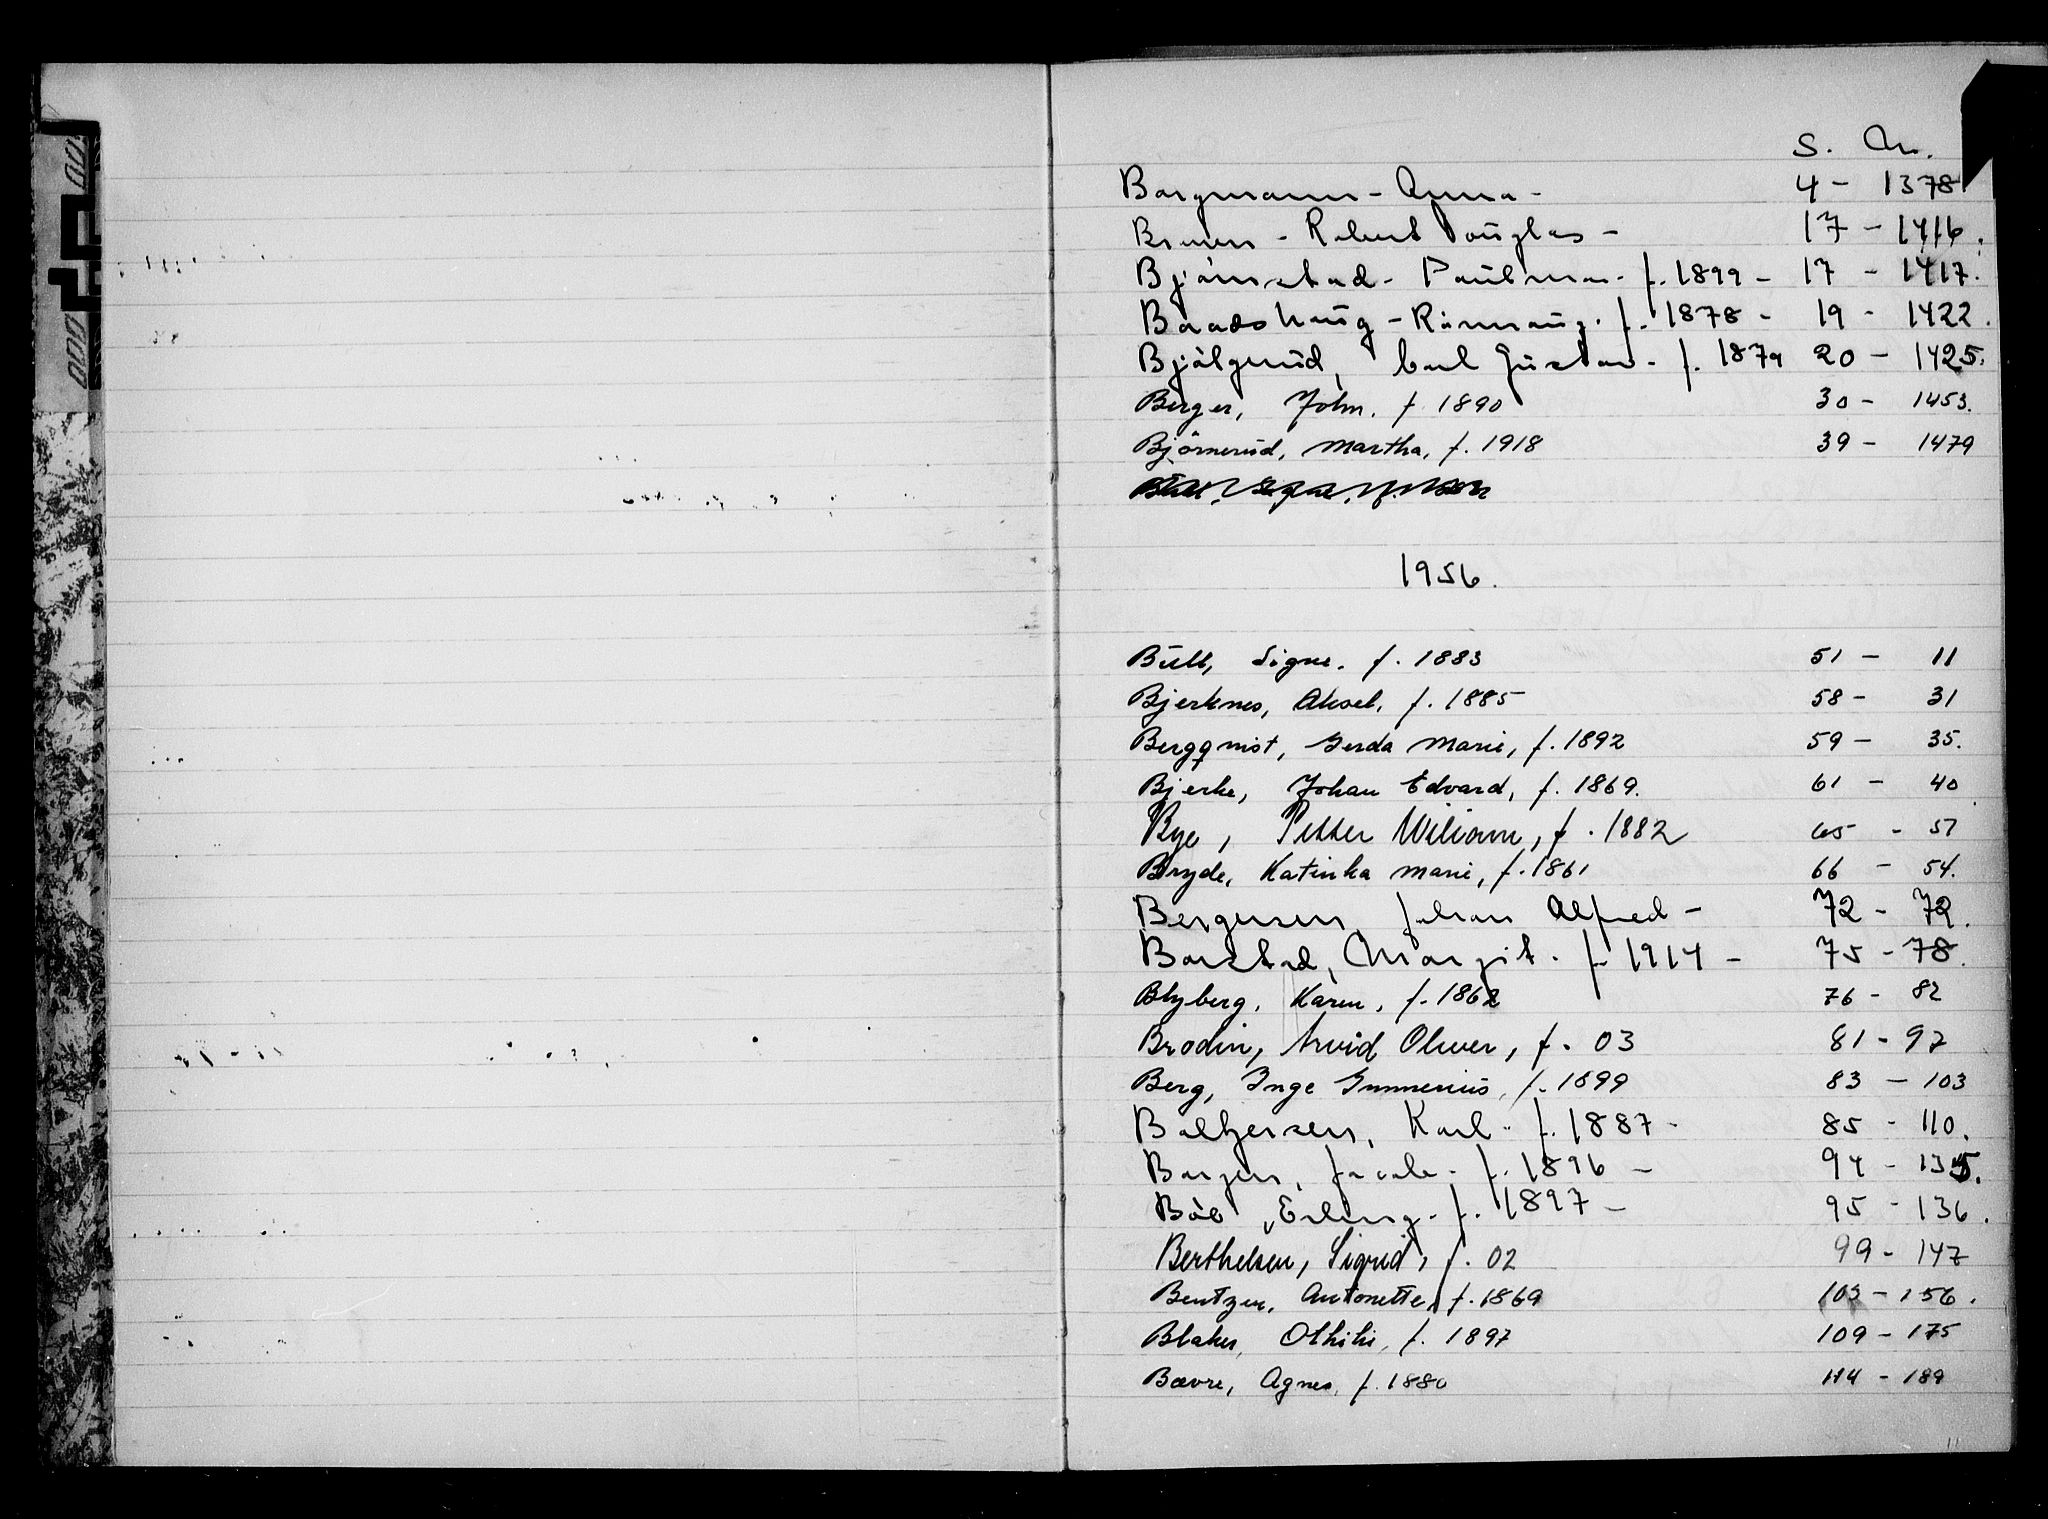 S. Nr.
Borgmann - Anna - 4 - 1378
Bruun - Robert Douglas - 17 - 1416.
Björnstad - Paul f. 1899 - 17 - 1417.
Baadshaug - Rönnaug. f. 1878 - 19 - 1422.
Bjölgerud, Carl Gustav - f. 1879 20 - 1425.
Berger, John. f. 1890 30 - 1453.
Björnerud, Martha, f. 1918 39 - 1479
1956.
Bull, Signe. f. 1883 51 - 11
Bjerknes, Aksel, f. 1885 58 - 31
Bergqvist, Gerda Marie, f. 1892 59 - 35.
Bjerke, Johan Edvard, f. 1869. 61 - 40
Bye, Petter Wiliam, f. 1882 65 - 51
Bryde, Katinka Marie, f. 1861 66 - 54.
Bergersen, Johan Alfred - 72 - 72.
Borstad, Margit. f. 1914 - 75 - 78.
Blyberg, Karen, f. 1862 76 - 82
Brodin, Arvid Oliver, f. 03 81 - 97
Berg, Inge Gunnerius, f. 1899 83 - 103
Balgersen, Karl - f. 1887 - 85 - 110.
Borgen, Jacob - f. 1896 - 94 - 135.
Böe, Erling - f. 1897 - 95 - 136.
Berthelsen, Sigrid, f. 02 99 - 147
Bentzen, Antonette, f. 1869 103 - 156.
Blaker, Othilie, f. 1897 109 - 175
Bævre, Agnes, f. 1880 114 - 189